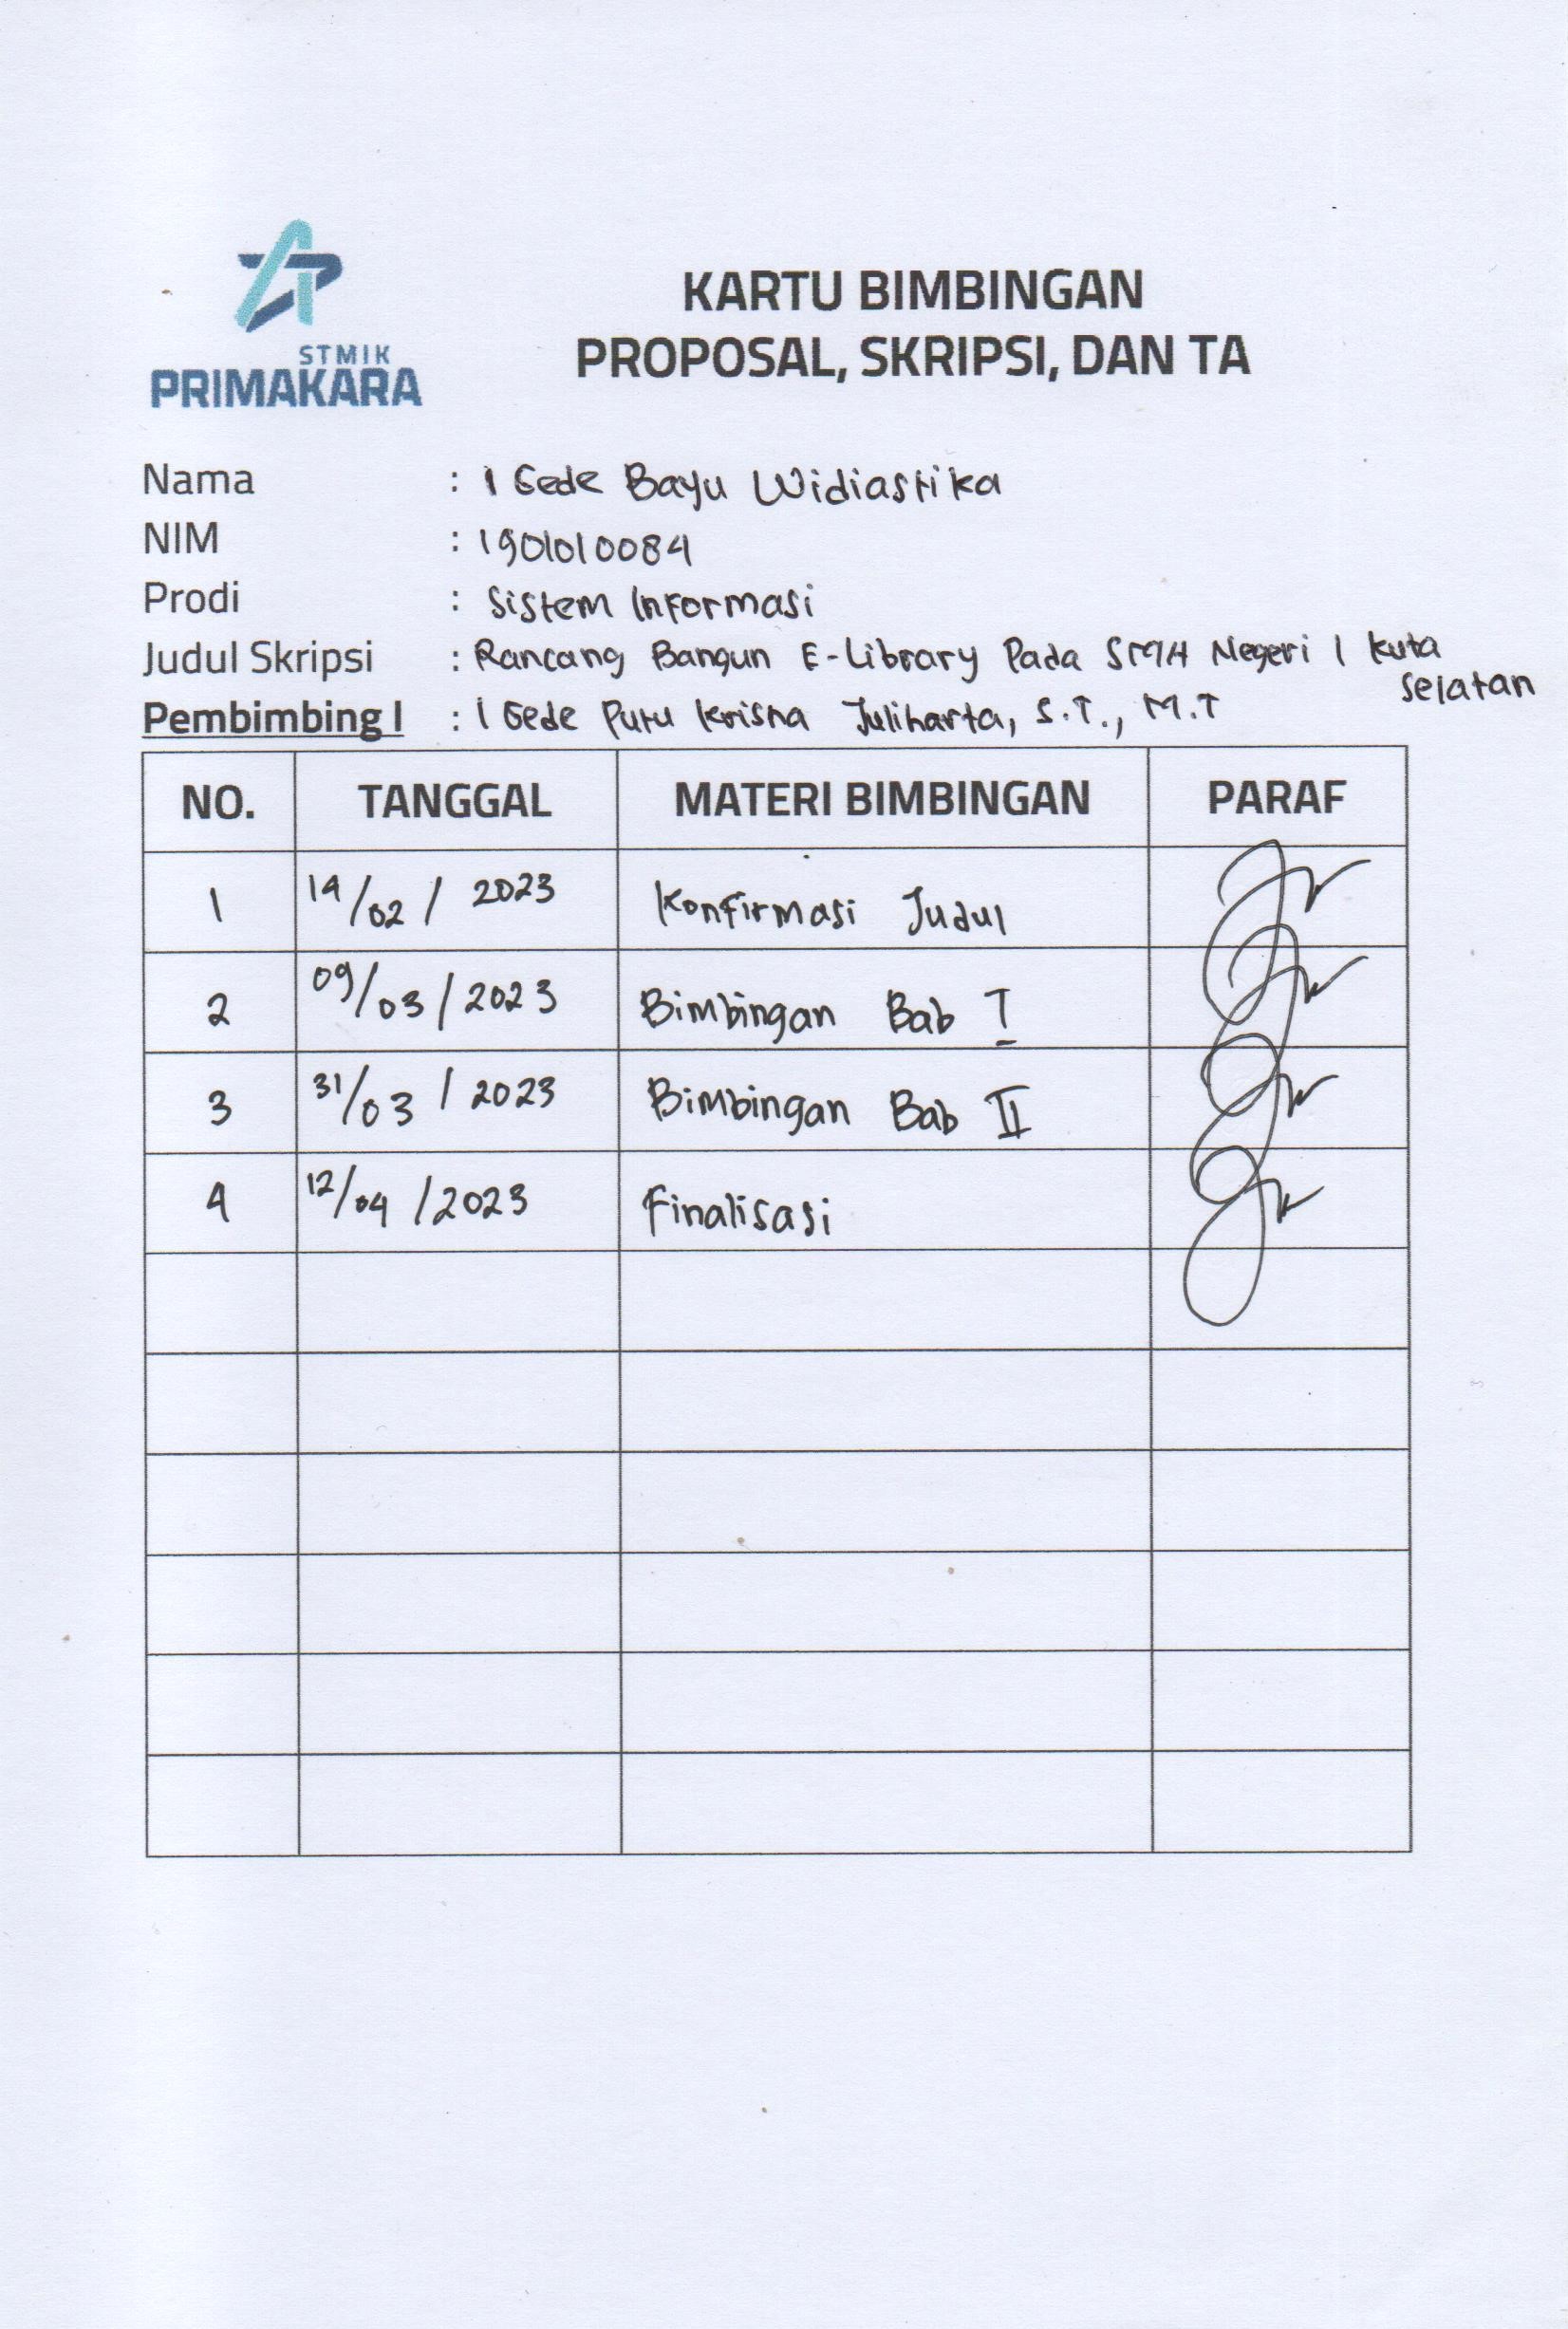 STMIK
PRIMAKARA
KARTU BIMBINGAN
PROPOSAL, SKRIPSI, DAN TA
Nama : I Gede Bayu Widiastika
NIM : 1901010084
Prodi : Sistem Informasi
Judul Skripsi : Rancang Bangun E-Library Pada SMA Negeri 1 Kuta
Selatan
Pembimbing I : I Gede Putu Krisna Juliharta, S.T., M.T
NO. TANGGAL MATERI BIMBINGAN PARAF
1 14/02/2023 Konfirmasi Judul
2 09/03/2023 Bimbingan Bab I
3 31/03/2023 Bimbingan Bab II
4 12/04/2023 Finalisasi